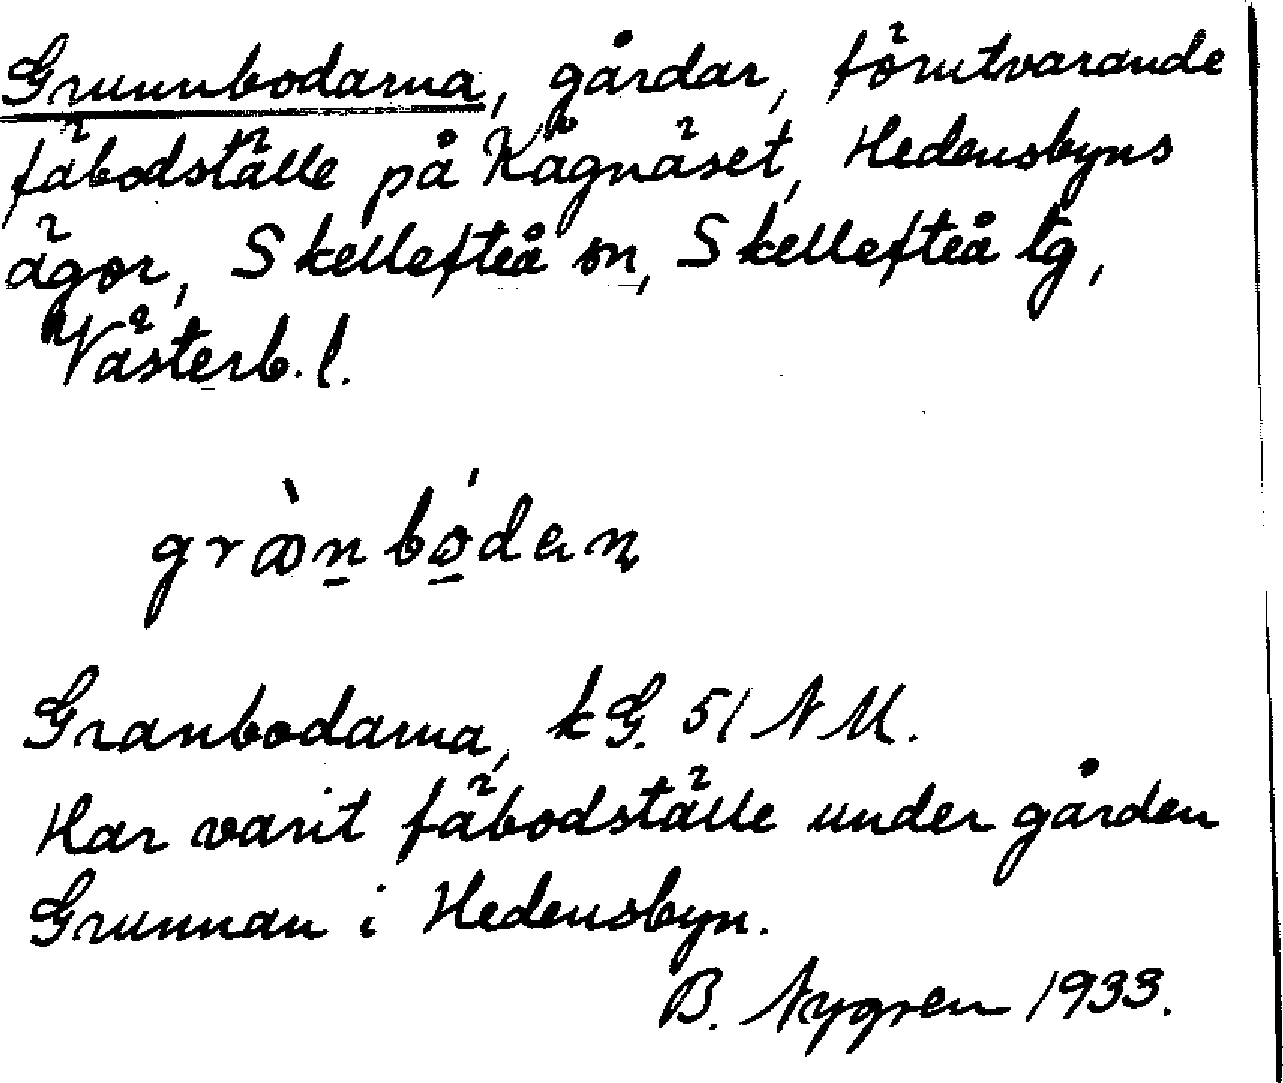 Grunnbodarna, gårdar, förutvarande
fäbodställe på Kågnäset, Hedensbyns
ägor, Skellefteå sn, Skellefteå tg,
Västerb. l.
Granbodarna, kG. 51 NM.
Har varit fäbodställe under gården
Grunnan i Hedensbyn.
B. Nygren 1933.